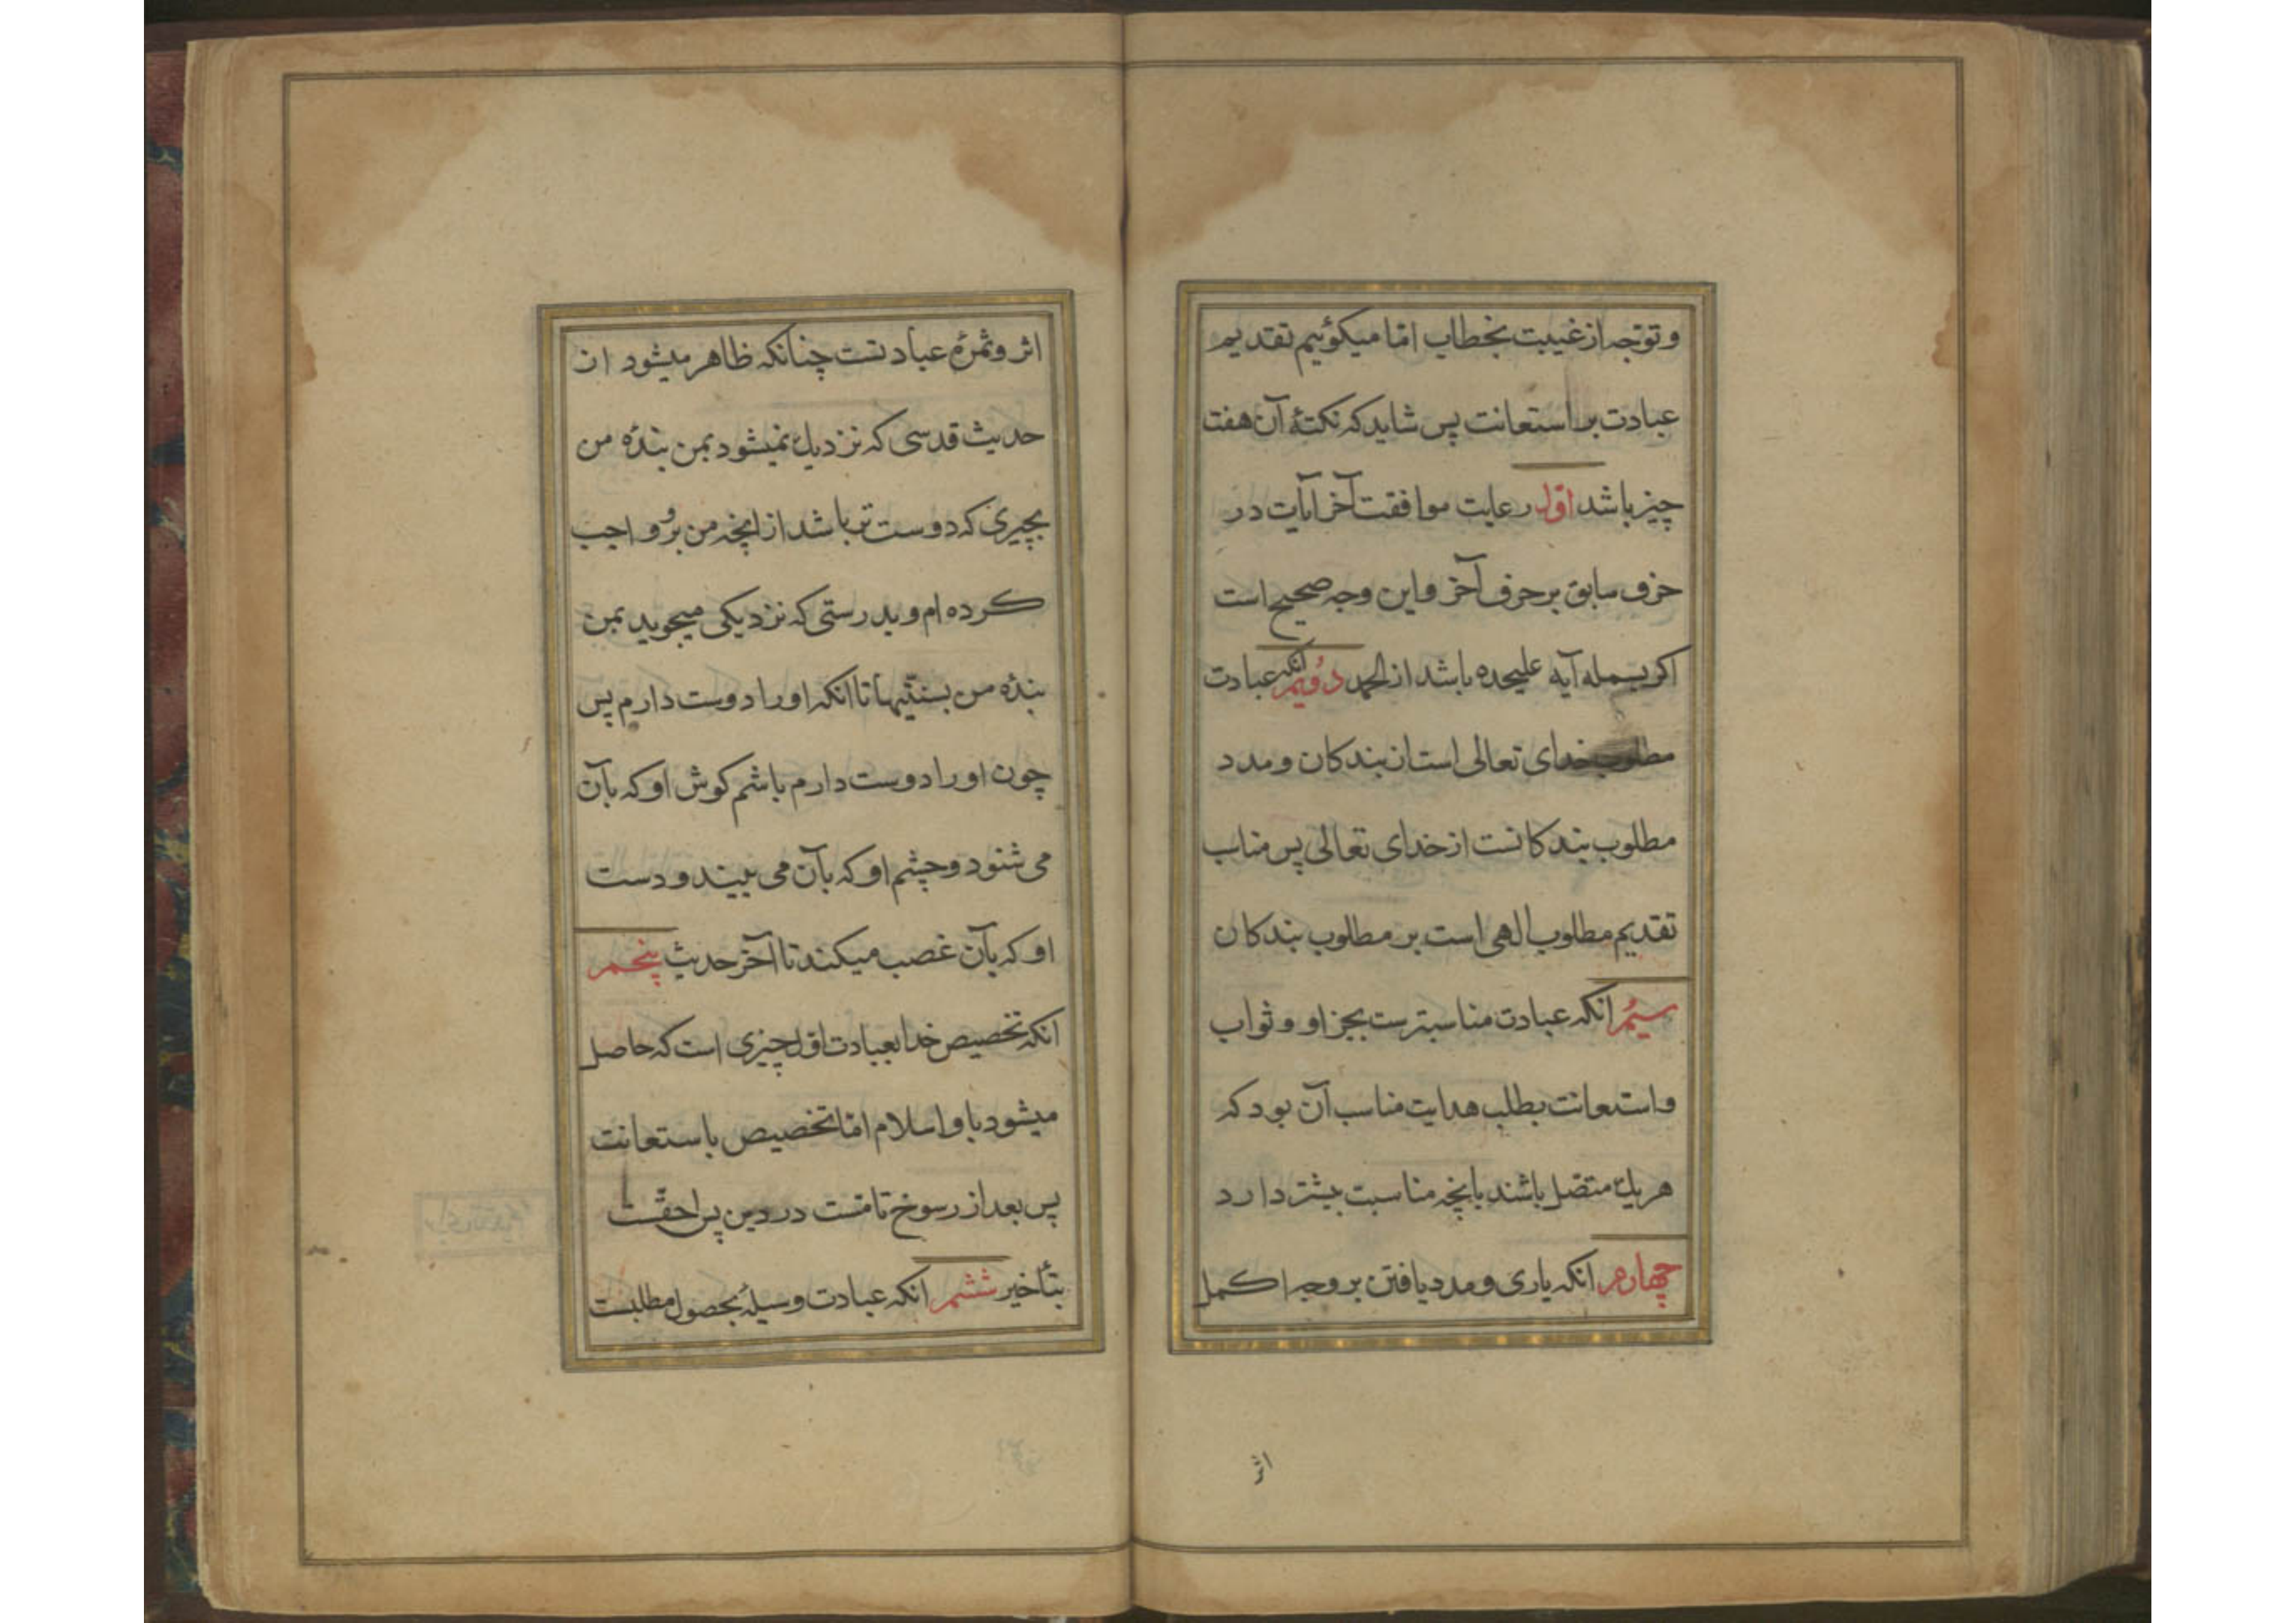 و توجه از غیبت بخطاب امّا میکوئیم تقدیم
عبادت بر استعانت پس شاید که نکتهٔ آن هفت
چیز باشد اوّل رعایت موافقت آخر آیات در
حرف سابق بر حرف آخر و این وجه صحیح است
اکر بسمله آیه علیحده باشد از الحمد دویّم انکه عبادت
مطلوب خدای تعالی است از بندکان و مدد
مطلوب بندکانست از خدای تعالی پس مناسب
تقدیم مطلوب الهی است بر مطلوب بندکان
سیّم انکه عبادت مناسبترست بجزا و ثواب
و استعانت بطلب هدایت مناسب آن بود که
هریک متصل باشند بانچه مناسبت بیشتر دارد
چهارم انکه یاری و مدد یافتن بر وجه اکمل
اثر
اثر و ثمرهٔ عبادتست چنانکه ظاهر میشود از
حدیث قدسی که نزدیک نمیشود بمن بندهٔ من
بچیزی که دوست تر باشد از انچه من برو واجب
کرده ام و بدرستی که نزدیکی میجوید بمن
بندهٔ من بسنتیها تا انکه او را دوست دارم پس
چون او را دوست دارم باشم کوش او که بآن
می شنود و چشم او که بآن می بیند و دست
او که بآن غصب میکند تا آخر حدیث پنجم
انکه تخصیص خدا بعبادت اوّل چیزی است که حاصل
میشود باو اسلام امّا تخصیص باستعانت
پس بعد از رسوخ تامّست در دین پس احقّست
بتأخیر ششم انکه عبادت وسیلهٔ بحصول مطلبست